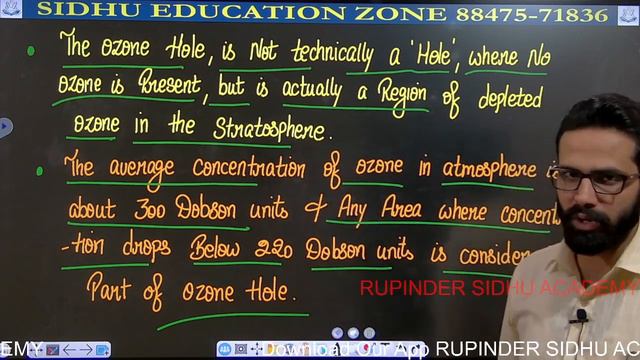 SIDHU EDUCATION ZONE 88475-71836
The ozone Hole, is Not technically a 'Hole', where No
ozone is Present, but is actually a Region of depleted
ozone in the Stratosphere.
The average concentration of ozone in atmosphere
about 300 Dobson units & Any Area where concent
-tion drops Below 220 Dobson units is consider
Part of ozone Hole.
RUPINDER SIDHU ACADEMY
EMY Download Our App RUPINDER SIDHU AC